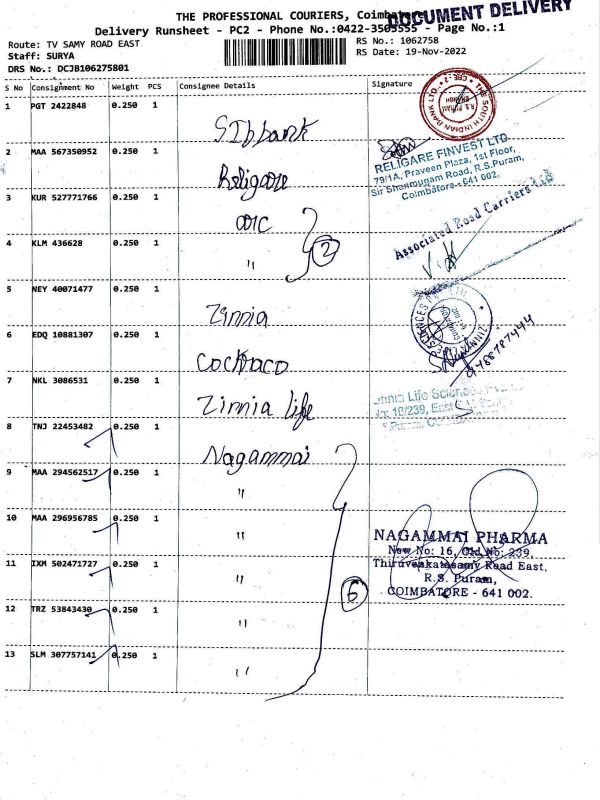 THE PROFESSIONAL COURIERS,
DOCUMENT DELIVERY
Delivery Runsheet - PC2 - Phone No.:0422-3505555 - Page No.:1
Route: TV SAMY ROAD EAST
RS No.: 1062758
Staff: SURYA
RS Date: 19-Nov-2022
DRS No.: DCJB106275801
S No Consignment No Weight PCS Consignee Details Signature
1 PGT 2422848 0.250 1
SIb bank
THE SOUTH INDIAN BANK LTD.
2 MAA 567350952 0.250 1 Religare
RELIGARE FINVEST LTD
79/1A, Praveen Plaza, 1st Floor,
Sir Shanmugam Road, R.S.Puram,
Coimbatore - 641 002.
3 KUR 527771766 0.250 1
Associated Road Carriers Ltd
4 KLM 436628 0.250 1 " 2
5 NEY 40071477 0.250 1 Zinnia
6 EDQ 10881307 0.250 1
7 NKL 3086531 0.250 1 Zinnia life
Zinnia Life Sciences
16/239, East
8 TNJ 22453482 0.250 1 Nagammai
9 MAA 294562517 0.250 1 "
10 MAA 296956785 0.250 1 "
NAGAMMAI PHARMA
New No: 16, Old No: 239,
11 IXM 502471727 0.250 1 "
Thiruvenkatasamy Road East,
R.S. Puram,
COIMBATORE - 641 002.
6
12 TRZ 53843430 0.250 1 "
13 SLM 307757141 0.250 1 "